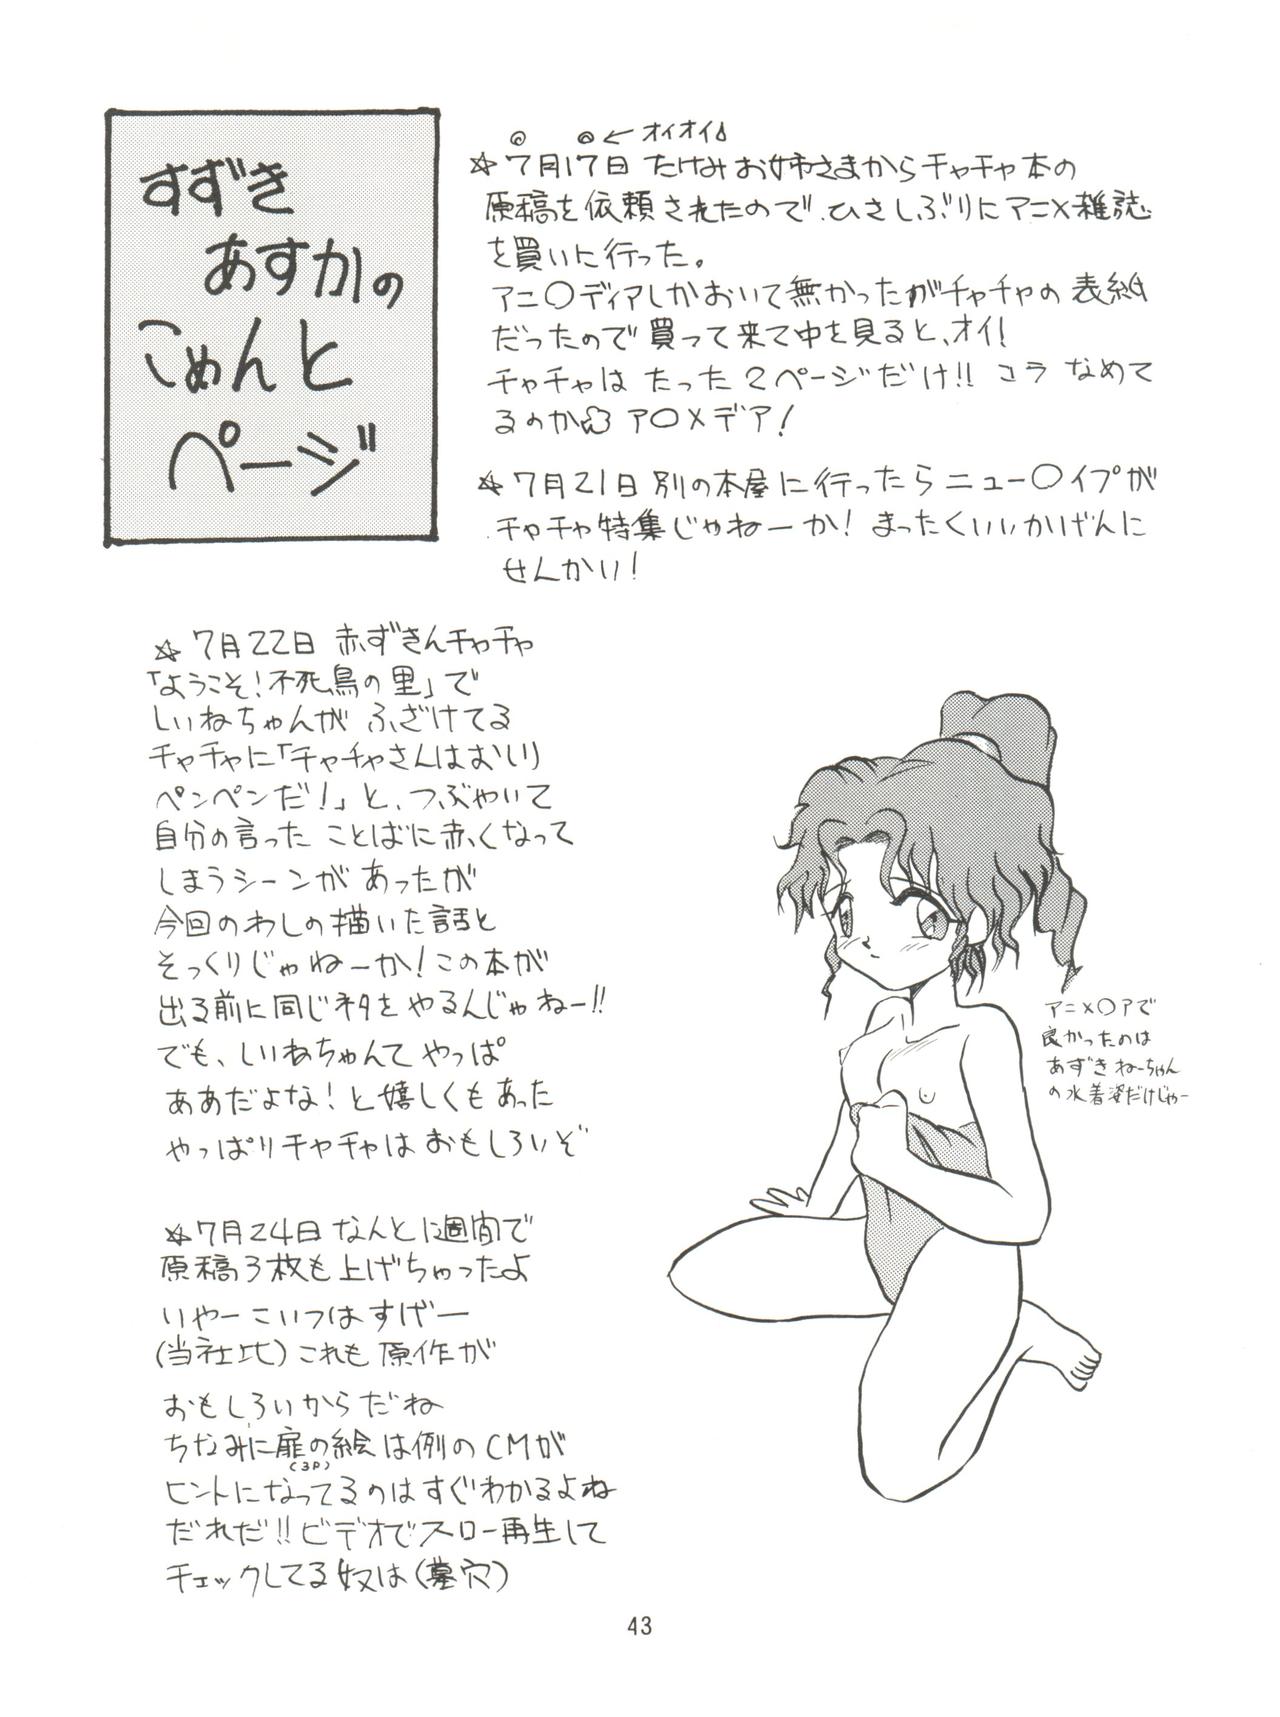 すずき
あすかの
こめんと
ページ
◎ ◎←オイオイ
☆7月17日 たけみお姉さまからチャチャ本の
原稿を依頼されたので、ひさしぶりにアニメ雑誌
を買いに行った。
アニ○ディアしかおいて無かったがチャチャの表紙
だったので買って来て中を見ると、オイ!
チャチャは たった2ページだけ!! コラ なめて
るのか ア○メデア!
☆7月21日 別の本屋に行ったらニュー○イプが
チャチャ特集じゃねーか! まったくいいかげんに
せんかい!
☆7月22日 赤ずきんチャチャ
「ようこそ!不死鳥の里」で
しいねちゃんが ふざけてる
チャチャに「チャチャさんはおしり
ペンペンだ!」と、つぶやいて
自分の言った ことばに赤くなって
しまうシーンが あったが
今回のわしの描いた話と
そっくりじゃねーか!この本が
出る前に同じネタをやるんじゃねー!!
でも、しいねちゃんて やっぱ
ああだよな!と嬉しくもあった
やっぱりチャチャはおもしろいぞ
☆7月24日 なんと1週間で
原稿3枚も上げちゃったよ
いやーこいつはすげー
(当社比)これも 原作が
おもしろいからだね
ちなみに扉の絵は例のCMが
(3P)
ヒントになってるのはすぐわかるよね
だれだ!!ビデオでスロー再生して
チェックしてる奴は(墓穴)
アニメ○アで
良かったのは
あずきねーちゃん
の水着姿だけじゃー
43